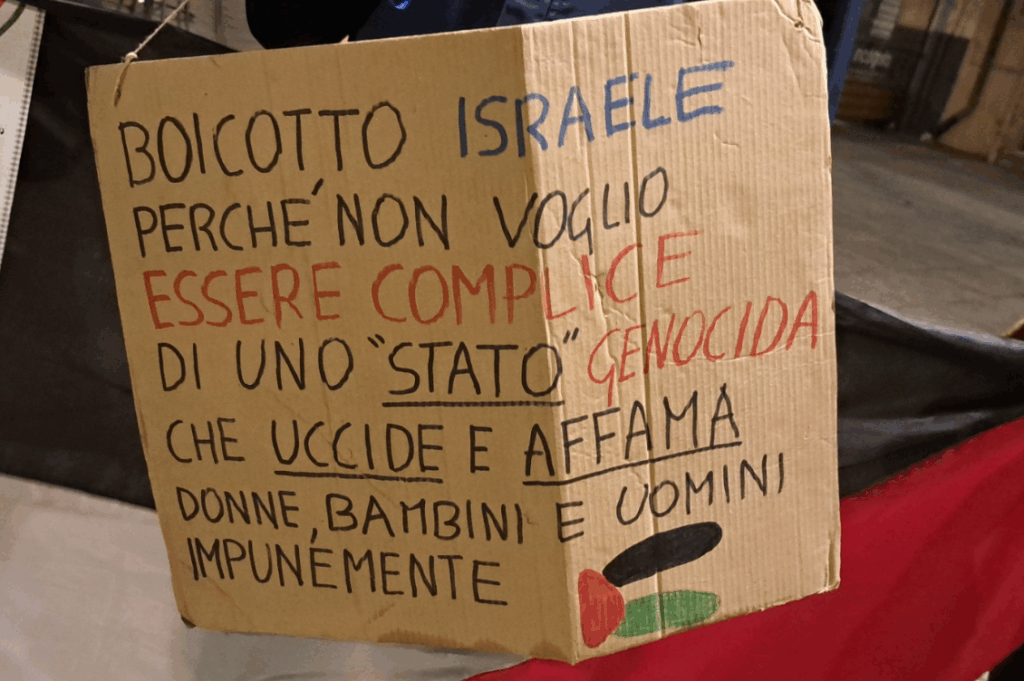 BOICOTTO ISRAELE
PERCHÉ NON VOGLIO
ESSERE COMPLICE
DI UNO "STATO" GENOCIDA
CHE UCCIDE E AFFAMA
DONNE, BAMBINI E UOMINI
IMPUNÉMENTE